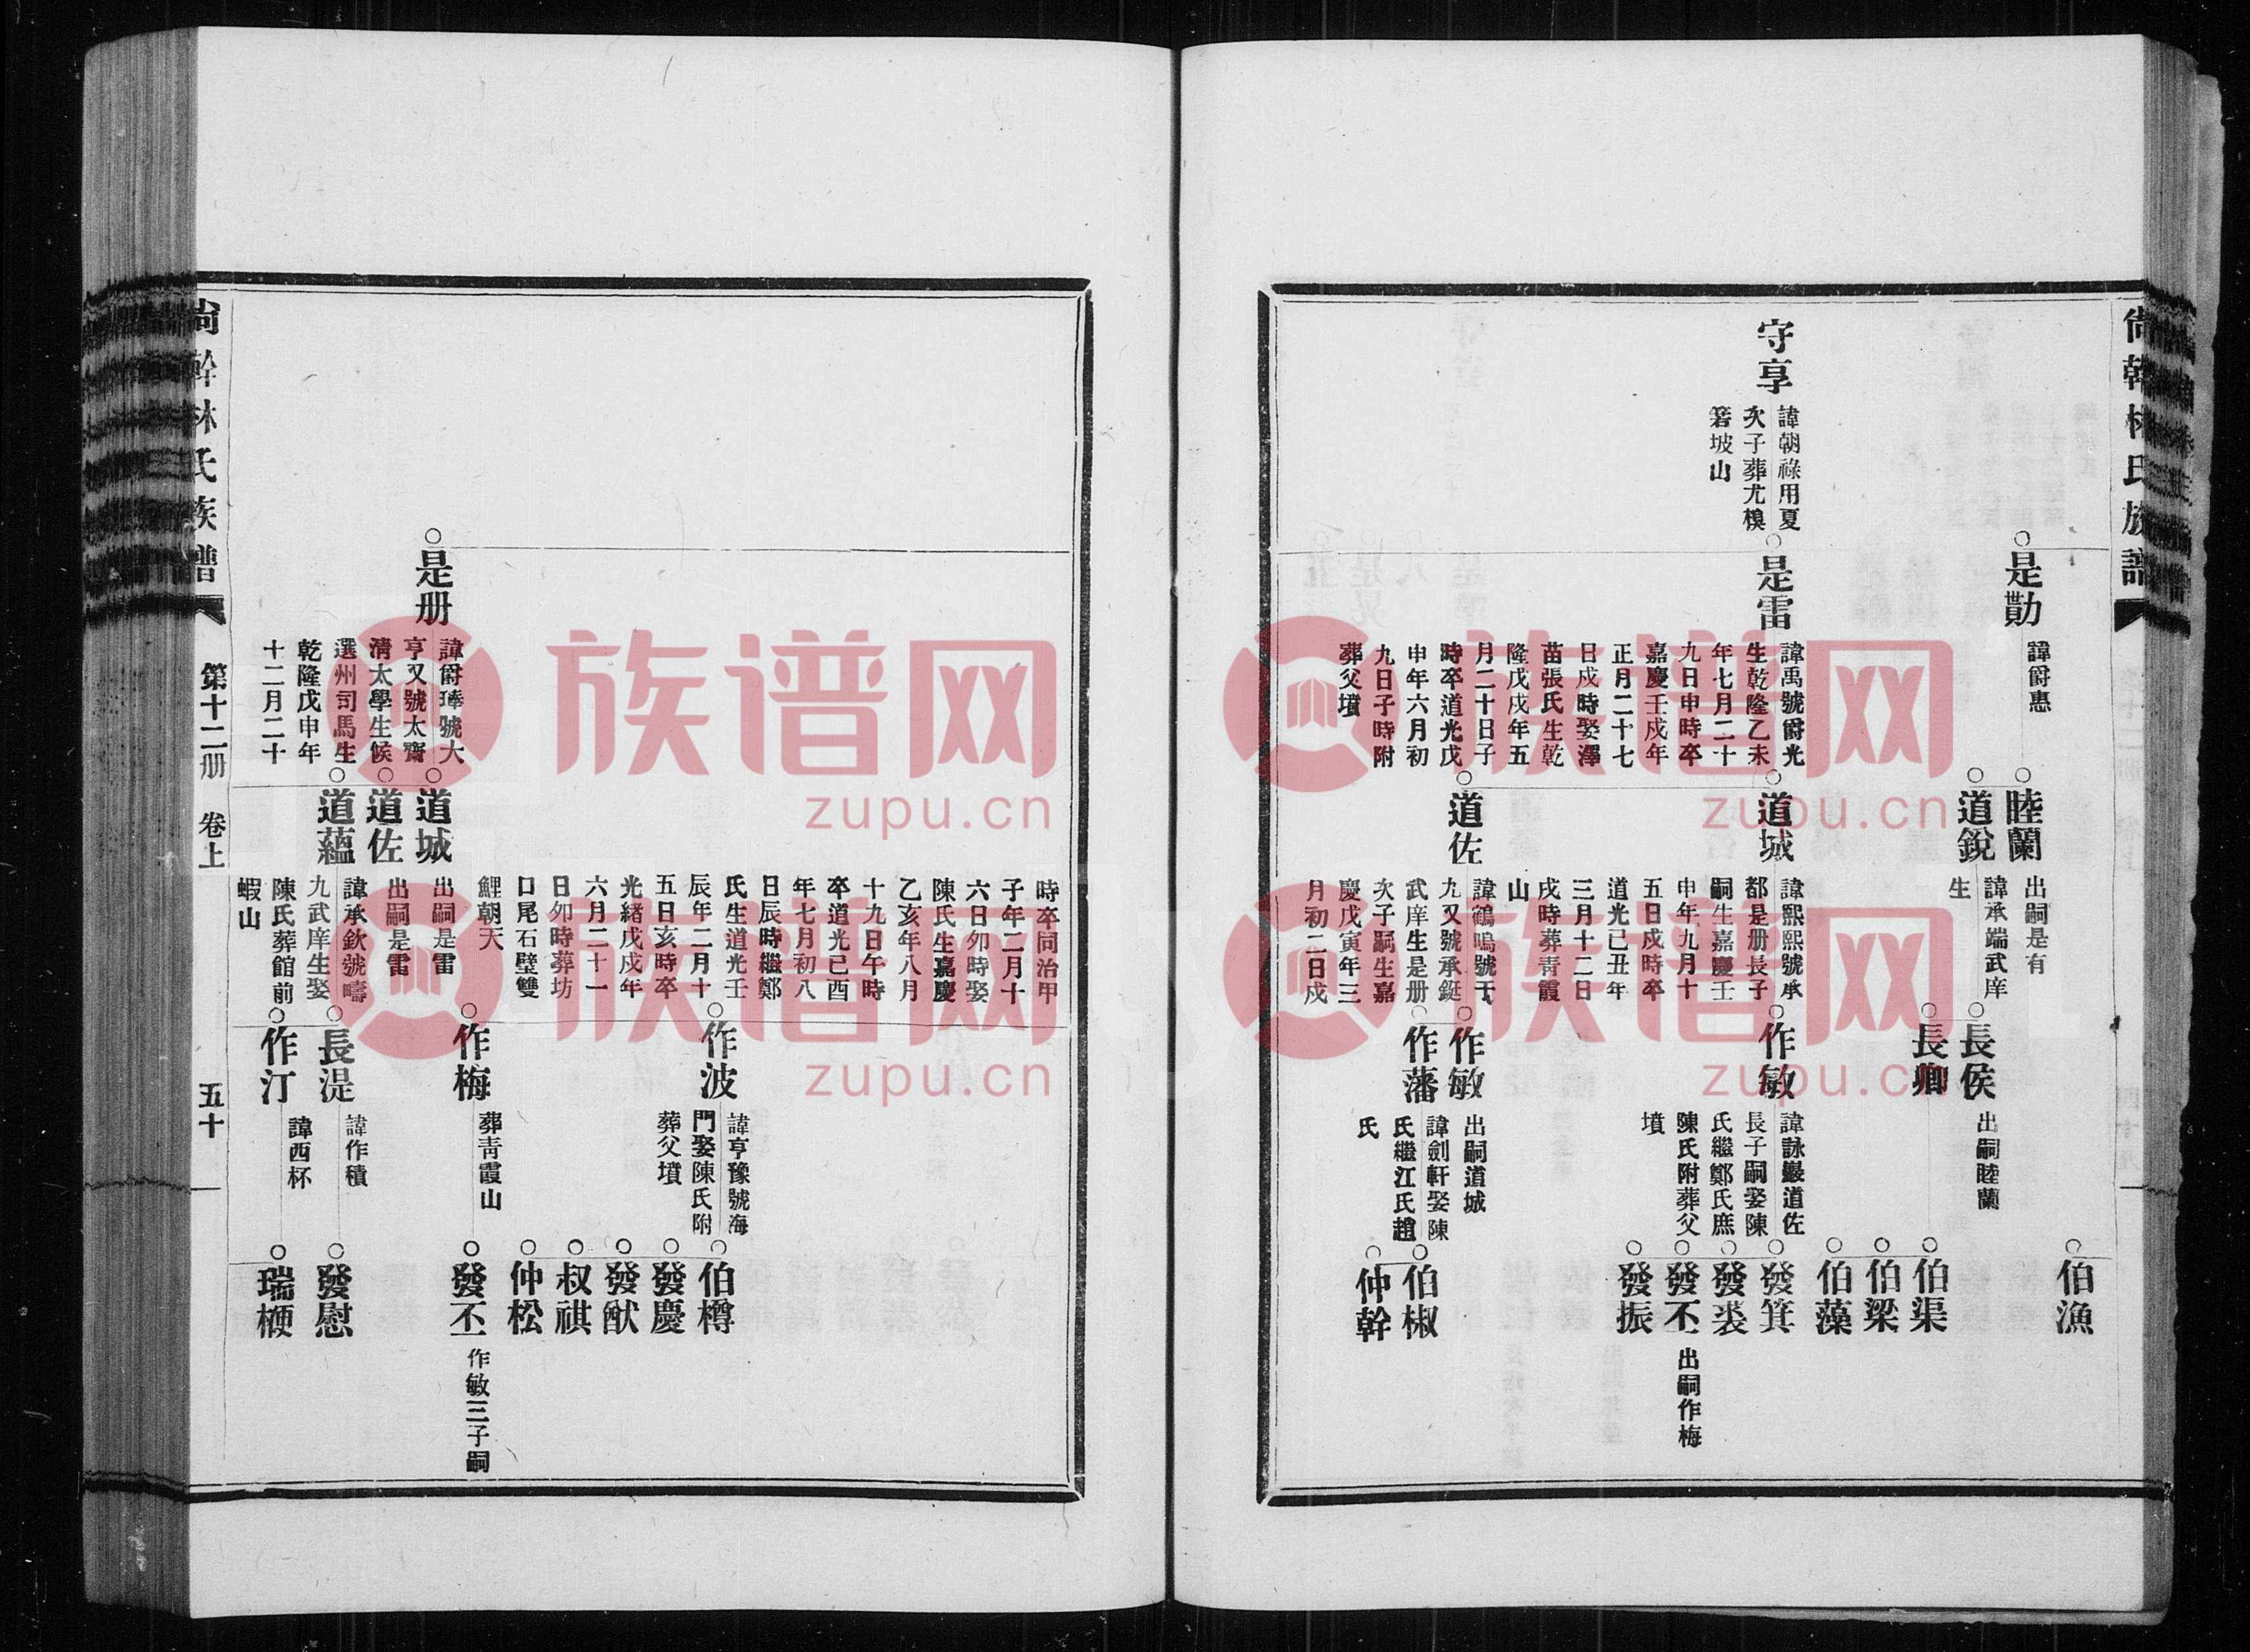 尙幹林氏族譜
守享
諱朝祿用夏
次子葬尤梹
箬坡山
是勛
諱爵惠
是雷
諱禹號爵光
生乾隆乙未
年七月二十
九日申時卒
嘉慶壬戌年
正月二十七
日戌時娶澤
苗張氏生乾
隆戊戌年五
月二十日子
時卒道光戊
申年六月初
九日子時附
葬父墳
睦蘭
出嗣是有
道銳
諱承端武庠
生
道城
諱熙熙號承
都是册長子
嗣生嘉慶壬
申年九月十
五日戌時卒
道光己丑年
三月十二日
戌時葬青霞
山
道佐
諱鶴鳴號于
九又號承鋌
武庠生是册
次子嗣生嘉
慶戊寅年三
月初二日戌
長侯
出嗣睦蘭
長卿
作敏
諱詠嚴道佐
長子嗣娶陳
氏繼鄭氏庶
陳氏附葬父
墳
作敏
出嗣道城
作藩
諱劍軒娶陳
氏繼江氏趙
氏
伯漁
伯渠
伯梁
伯藻
發箕
發裘
發丕
出嗣作梅
發振
伯椒
仲幹
時卒同治甲
子年二月十
六日卯時娶
陳氏生嘉慶
乙亥年八月
十九日午時
卒道光己酉
年七月初八
日辰時繼鄭
氏生道光壬
辰年二月十
五日亥時卒
光緒戊戌年
六月二十一
日卯時葬坊
口尾石壁雙
鯉朝天
是册
諱爵琫號大
亨又號太齋
清太學生候
選州司馬生
乾隆戊申年
十二月二十
道城
出嗣是雷
道佐
出嗣是雷
道蘊
諱承欽號疇
九武庠生娶
陳氏葬館前
蝦山
作波
諱亨豫號海
門娶陳氏附
葬父墳
作梅
葬靑霞山
長湜
諱作積
作汀
諱西杯
伯樽
發慶
發猷
叔祺
仲松
發丕
作敏三子嗣
發慰
瑞梗
尙幹林氏族譜
第十二册 卷上
五十
族谱网
zupu.cn
族谱网
zupu.cn
族谱网
zupu.cn
族谱网
zupu.cn